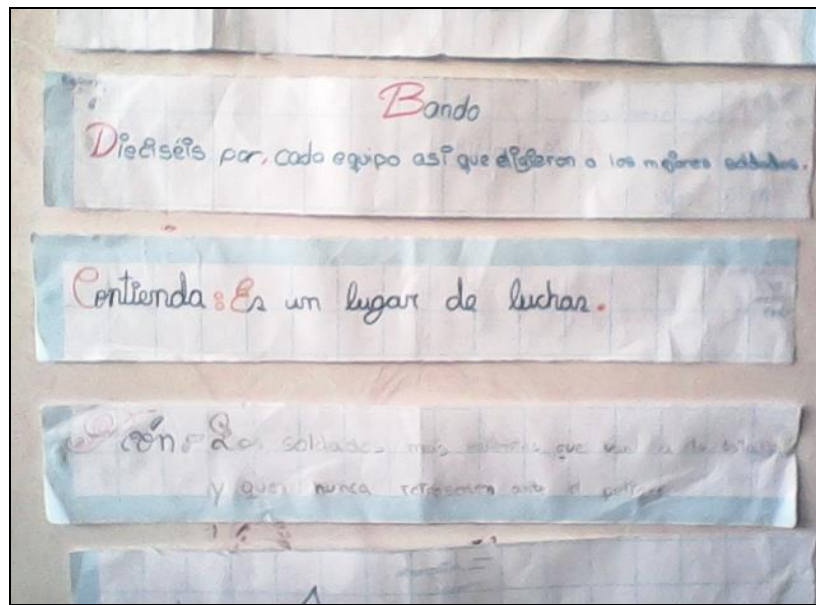 Bando
Dieciséis por, cada equipo así que eligieron a los mejores soldados.
Contienda: Es un lugar de luchas.
Los soldados más que van a la
y que nunca ante el